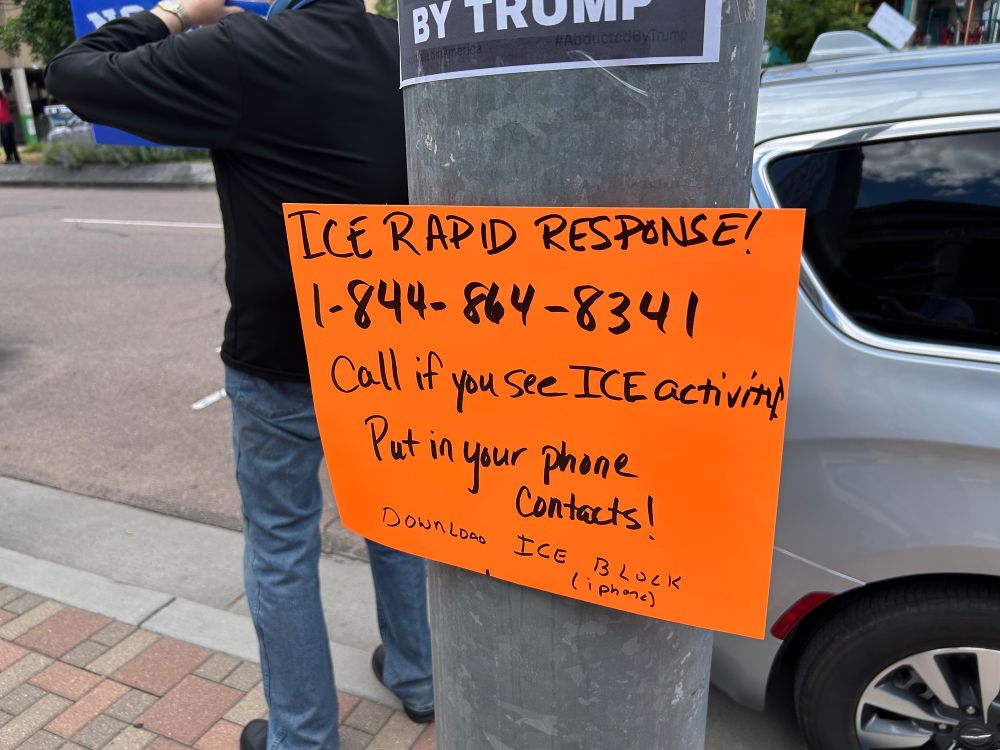 BY TRUMP
#AbductedByTrump
ICE RAPID RESPONSE!
1-844-864-8341
Call if you see ICE activity!
Put in your phone
Contacts!
DOWNLOAD ICE BLOCK
(iphone)